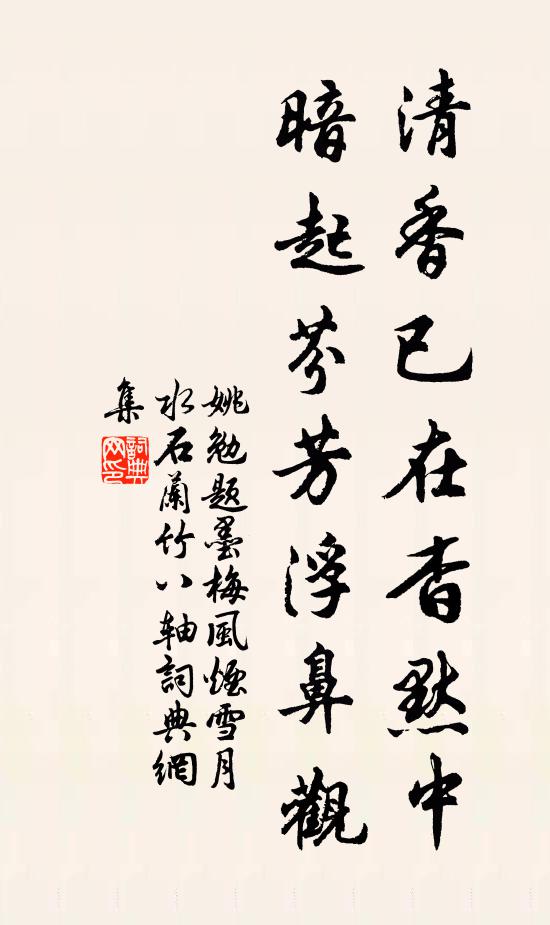 清香已在杳默中
暗起芬芳浮鼻觀
姚勉題墨梅風煙雪月
水石蘭竹八軸詞典網
集
詞典
网印